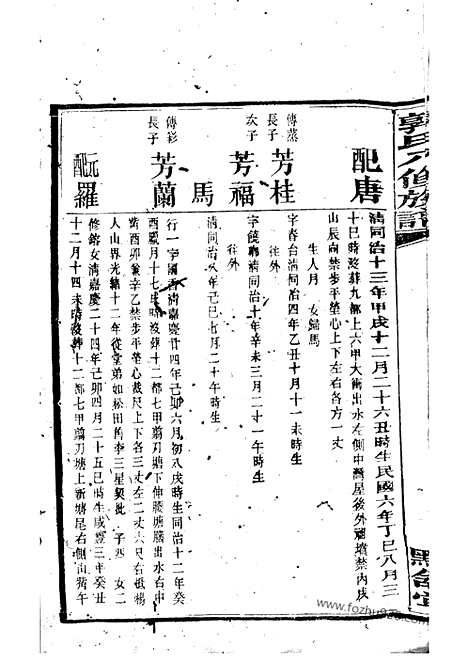 郭氏六修族譜
配唐
清同治十三年甲戌十二月二十六丑時生民國六年丁巳八月三
十巳時沒葬九都上六甲大衝出水左側中灣屋後外禰墳禁內戌
山辰向禁步平塋心上下左右各方一丈
生人月 女歸馬
傳蒸
長子
芳桂
字春台清同治四年乙丑十月十一未時生
往外
次子
芳福
字饒 清同治十年辛未三月二十一午時生
往外
馬
清同治八年己巳七月二十午時生
傳彩
長子
芳蘭
行一字 清嘉慶廿四年己卯六月初八戌時生同治十二年癸
酉 月十七 時沒葬十二都七甲翦刀塘下伸腰塘勝出水右中
酉卯 辛乙禁步平塋心裁尺上下各三丈左二丈六尺右抵楊
人山界光緒十二年從堂弟如松田角李三星契批 子 女二
元配
羅
修 女清嘉慶二十四年己卯四月二十五巳時生咸豐三年癸丑
十二月十四未時沒葬十二都七甲翦刀塘上新塘尾右側山
www.fozhu920.com